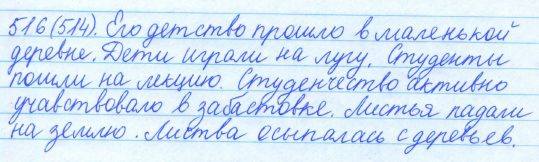 516(514). Его детство прошло в маленькой
деревне. Дети играли на лугу. Студенты
пошли на лекцию. Студенчество активно
учавствовало в забастовке. Листья падали
на землю. Листва осыпалась с деревьев.